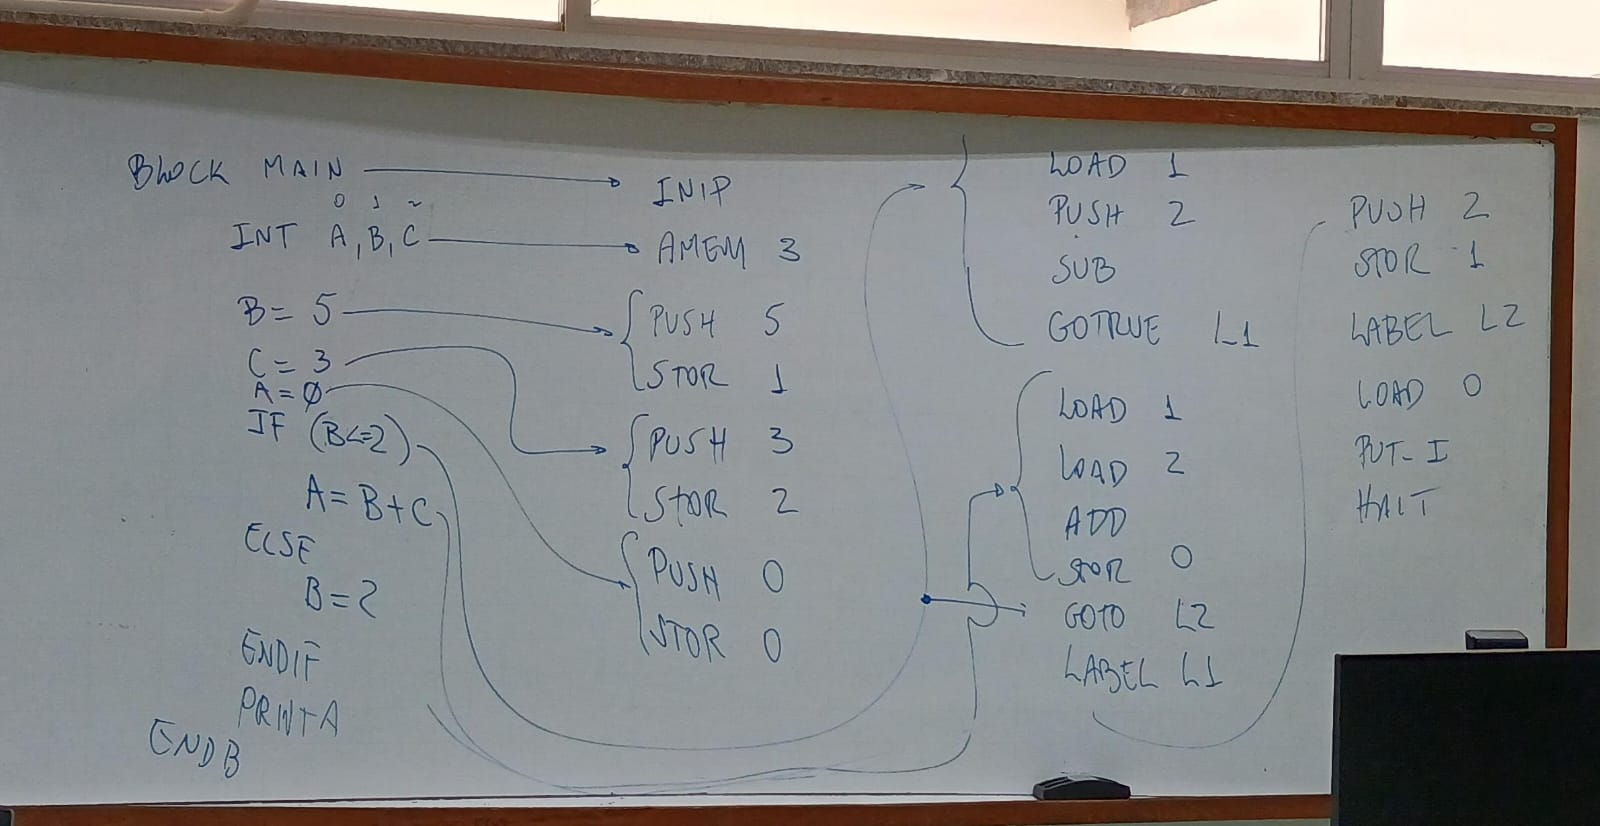 BLOCK MAIN
0 1 2
INT A, B, C
B = 5
C = 3
A = 0
IF (B<=2)
A = B + C
ELSE
B = 2
ENDIF
PRINT A
ENDB
INIP
AMEM 3
PUSH 5
STOR 1
PUSH 3
STOR 2
PUSH 0
STOR 0
LOAD 1
PUSH 2
SUB
GOTRUE L1
LOAD 1
LOAD 2
ADD
STOR 0
GOTO L2
LABEL L1
PUSH 2
STOR 1
LABEL L2
LOAD 0
PUT-I
HALT